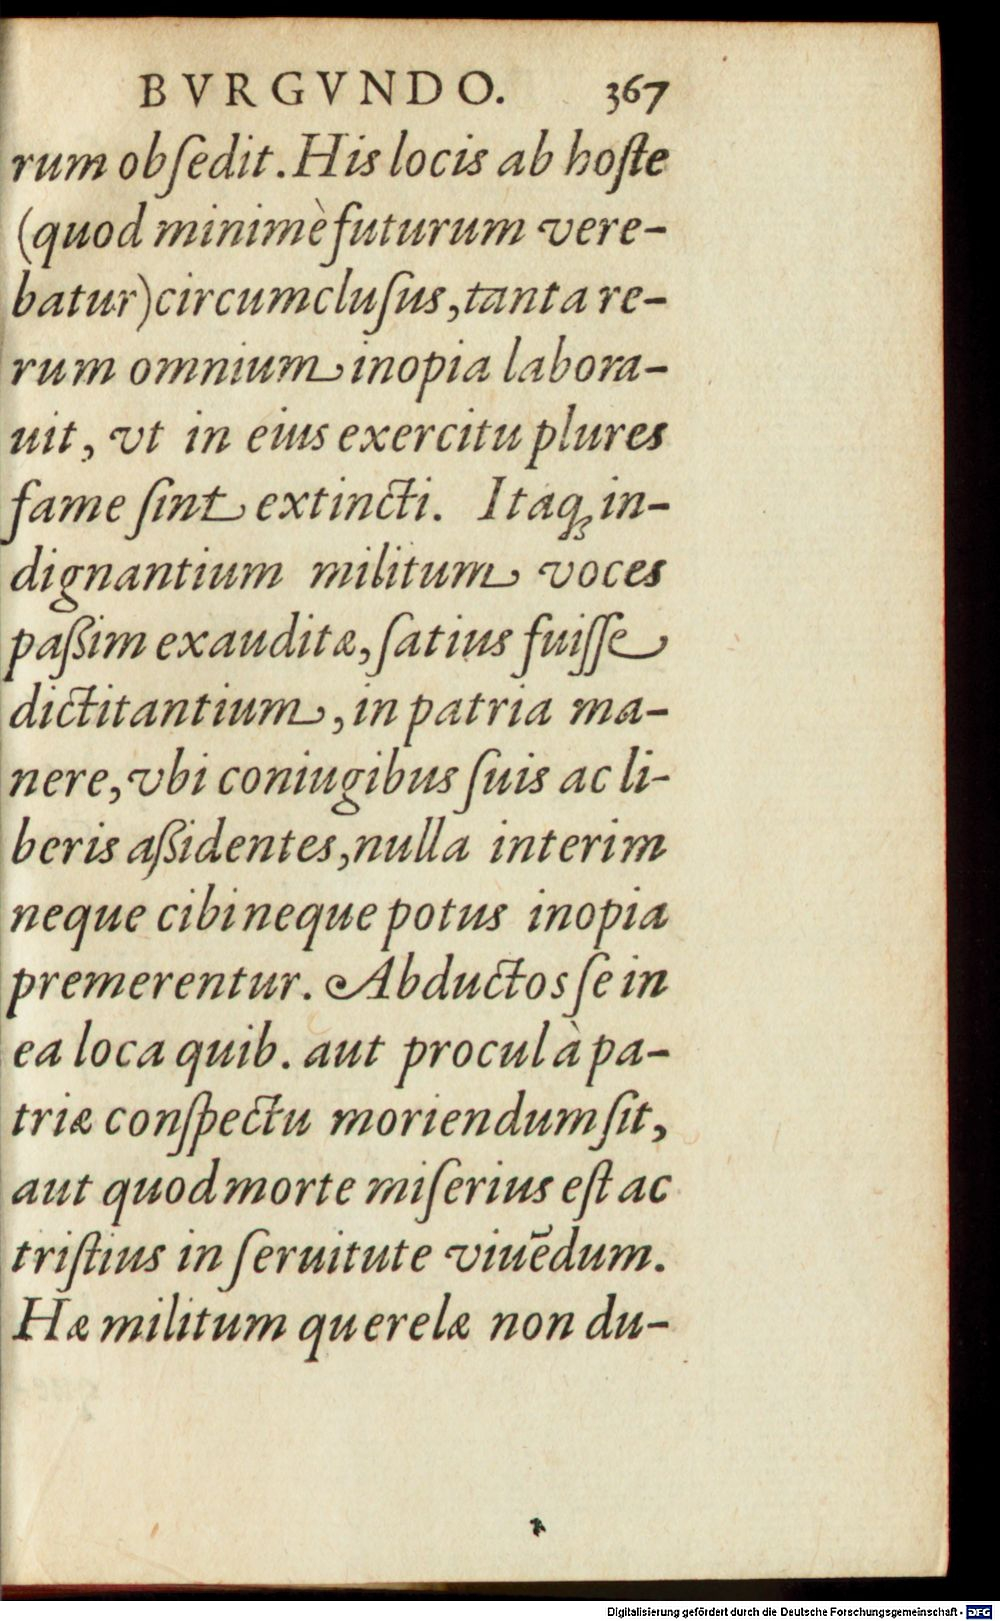 BVRGVNDO. 367
rum obſedit. His locis ab hoſte
(quod minimè futurum vere-
batur) circumcluſus, tanta re-
rum omnium inopia labora-
uit, vt in eius exercitu plures
fame ſint extincti. Itaqꝫ in-
dignantium militum voces
paßim exauditæ, ſatius fuiſſe
dictitantium, in patria ma-
nere, vbi coniugibus ſuis ac li-
beris aßidentes, nulla interim
neque cibi neque potus inopia
premerentur. Abductos ſe in
ea loca quib. aut procul à pa-
triæ conſpectu moriendum ſit,
aut quod morte miſerius eſt ac
triſtius in ſeruitute viuēdum.
Hæ militum querelæ non du-
Digitalisierung gefördert durch die Deutsche Forschungsgemeinschaft - DFG